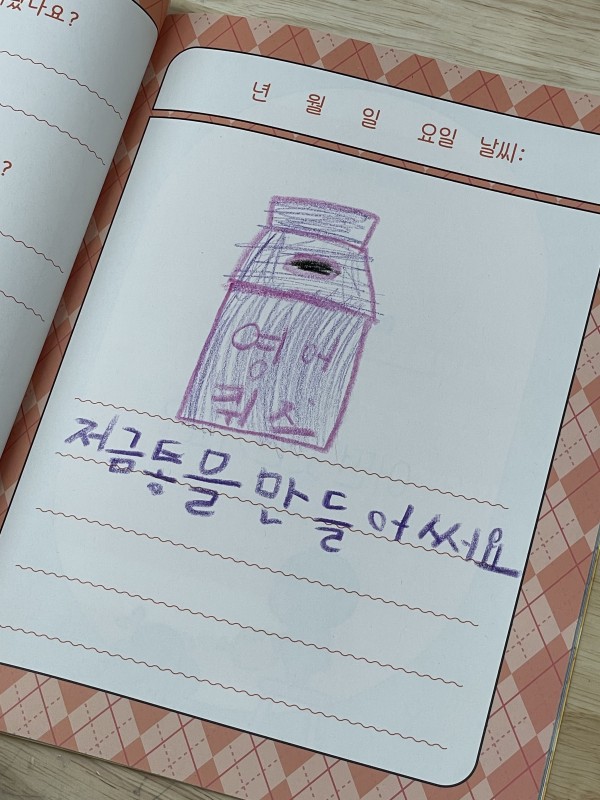 나요?
?
년 월 일 요일 날씨:
영어
퀴스
저금통믈 만들어써요